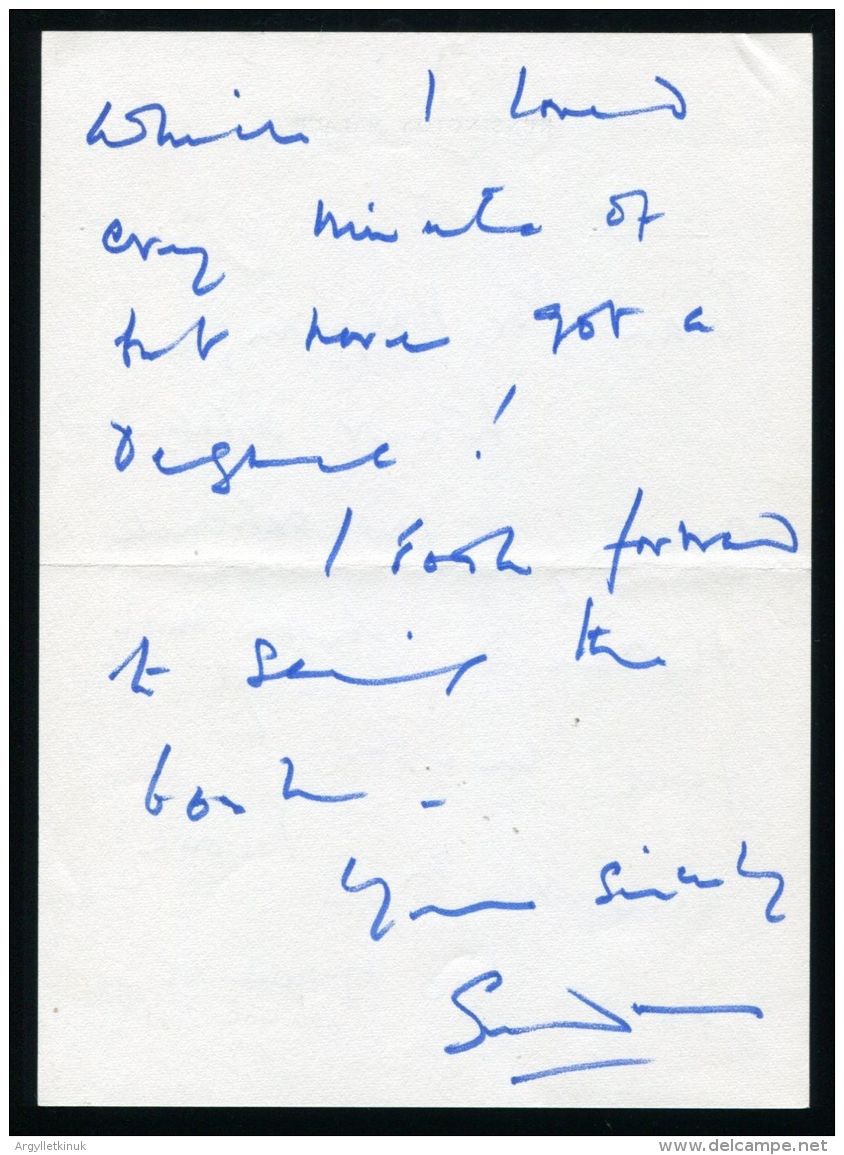 which I loved
every minute of
but have got a
Degree!
I look forward
to seeing the
book -
Yours sincerely
Snowdon
Argylletkinuk
www.delcampe.net